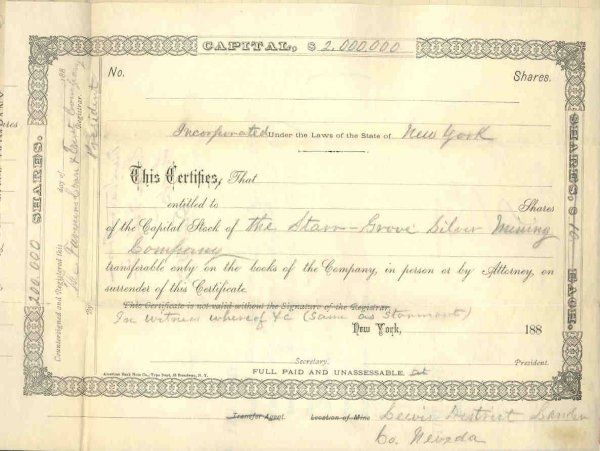 CAPITAL, $ 2.000.000
No.
Shares.
Incorporated Under the Laws of the State of New York
This Certifies, That
entitled to Shares
of the Capital Stock of the Starr-Grove Silver Mining
Company
transferable only on the books of the Company, in person or by Attorney, on
surrender of this Certificate.
This Certificate is not valid without the Signature of the Registrar.
In witness whereof &c (Same as Stormont)
New York, 188
Secretary. President.
American Bank Note Co., New York.
FULL PAID AND UNASSESSABLE.
Transfer Agent. Location of Mine Lewis District Lander
Co. Neveda
200.000 SHARES.
Countersigned and Registered this day of 188
The Farmers Loan & Trust Company
Registrar
By President
SHARES, $ 10. EACH.